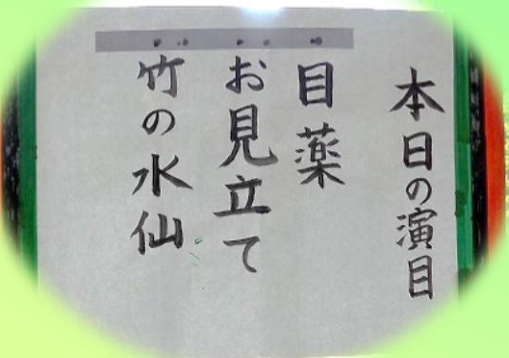 本日の演目
目薬
お見立て
竹の水仙